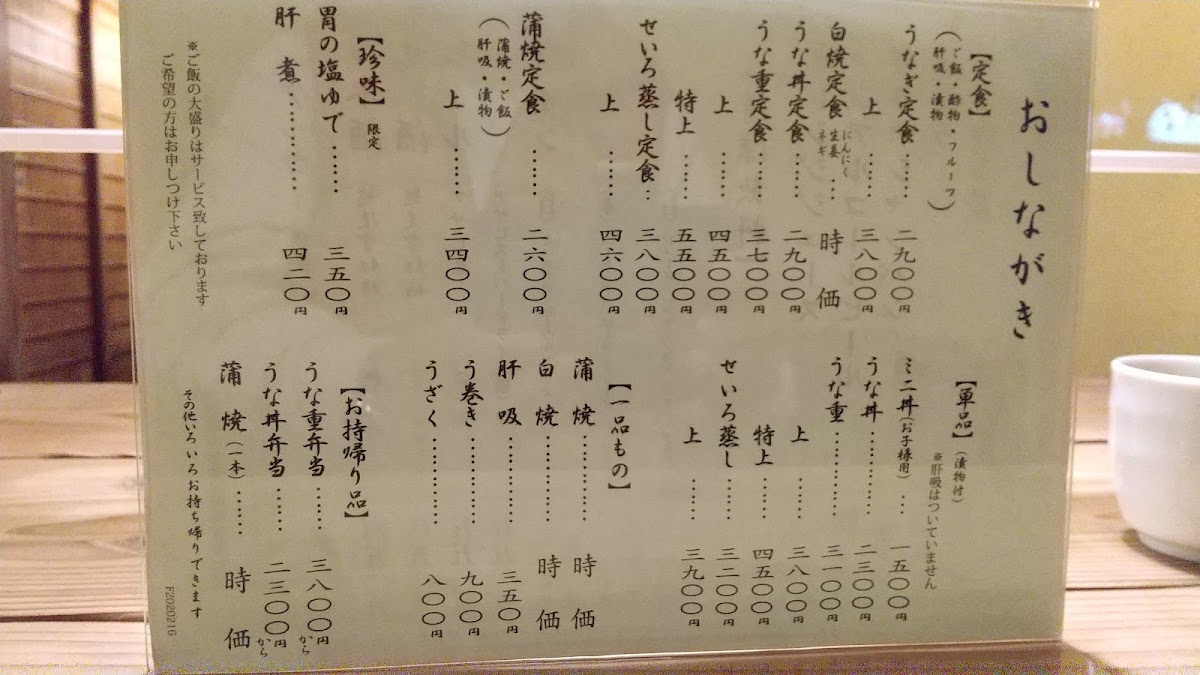 おしながき
【定食】
(ご飯・酢物・フルーツ
肝吸・漬物)
うなぎ定食……二九〇〇円
上……三八〇〇円
白焼定食 にんにく 生姜 ネギ …時価
うな丼定食……二九〇〇円
うな重定食……三七〇〇円
上……四五〇〇円
特上……五五〇〇円
せいろ蒸し定食‥三八〇〇円
上……四六〇〇円
蒲焼定食……二六〇〇円
(蒲焼・ご飯
肝吸・漬物)
上……三四〇〇円
【珍味】限定
胃の塩ゆで……三五〇円
肝煮…………四二〇円
※ご飯の大盛りはサービス致しております
ご希望の方はお申しつけ下さい
【単品】(漬物付)
※肝吸はついていません
ミニ丼(お子様用)…一五〇〇円
うな丼…………二三〇〇円
うな重…………三一〇〇円
上……三八〇〇円
特上……四五〇〇円
せいろ蒸し……三二〇〇円
上……三九〇〇円
【一品もの】
蒲焼…………時価
白焼…………時価
肝吸…………三五〇円
う巻き…………九〇〇円
うざく…………八〇〇円
【お持帰り品】
うな重弁当……三八〇〇円から
うな丼弁当……二三〇〇円から
蒲焼(一本)……時価
その他いろいろお持ち帰りできます
F2020216